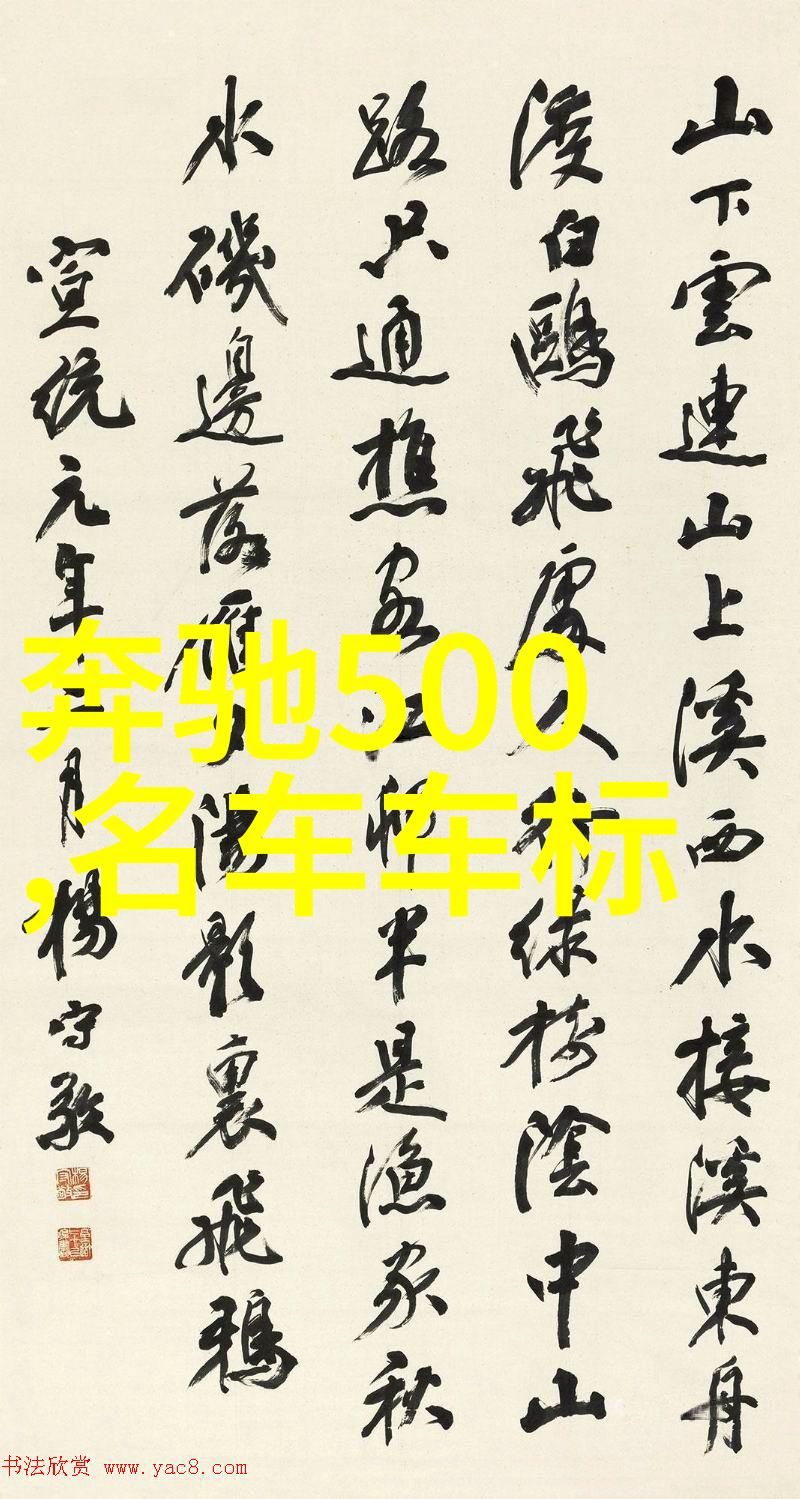 山下雲連山上溪西水接溪東舟
渡白鷗飛處人行綠樹陰中山
路只通樵客江邨半是漁家秋
水磯邊落雁夕陽影裏飛鴉
宣統元年月楊守敬
奔驰500
,名车车标
书法欣赏 www.yac8.com